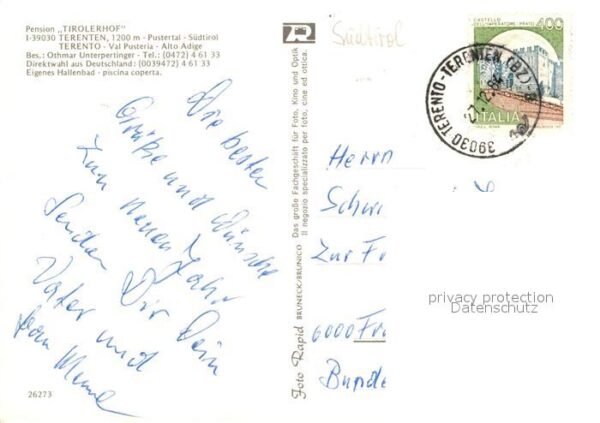 Pension „TIROLERHOF"
I-39030 TERENTEN, 1200 m - Pustertal - Südtirol
TERENTO - Val Pusteria - Alto Adige
Bes.: Othmar Unterpertinger - Tel.: (0472) 4 61 33
Direktwahl aus Deutschland: (0039472) 4 61 33
Eigenes Hallenbad - piscina coperta.
Die besten
Grüße und Wünsche
zum neuen Jahr
senden Dir Dein
Vater und
26273
Foto Rapid BRUNECK/BRUNICO
Das große Fachgeschäft für Foto, Kino und Optik
Il negozio specializzato per foto, cine ed ottica.
Südtirol
CASTELLO
DELL'IMPERATORE - PRATO
400
ITALIA
39030 TERENTO-TERENTEN (BZ)
Herrn
Schw
Zur Fr
6000 Fra
Bunde
privacy protection
Datenschutz